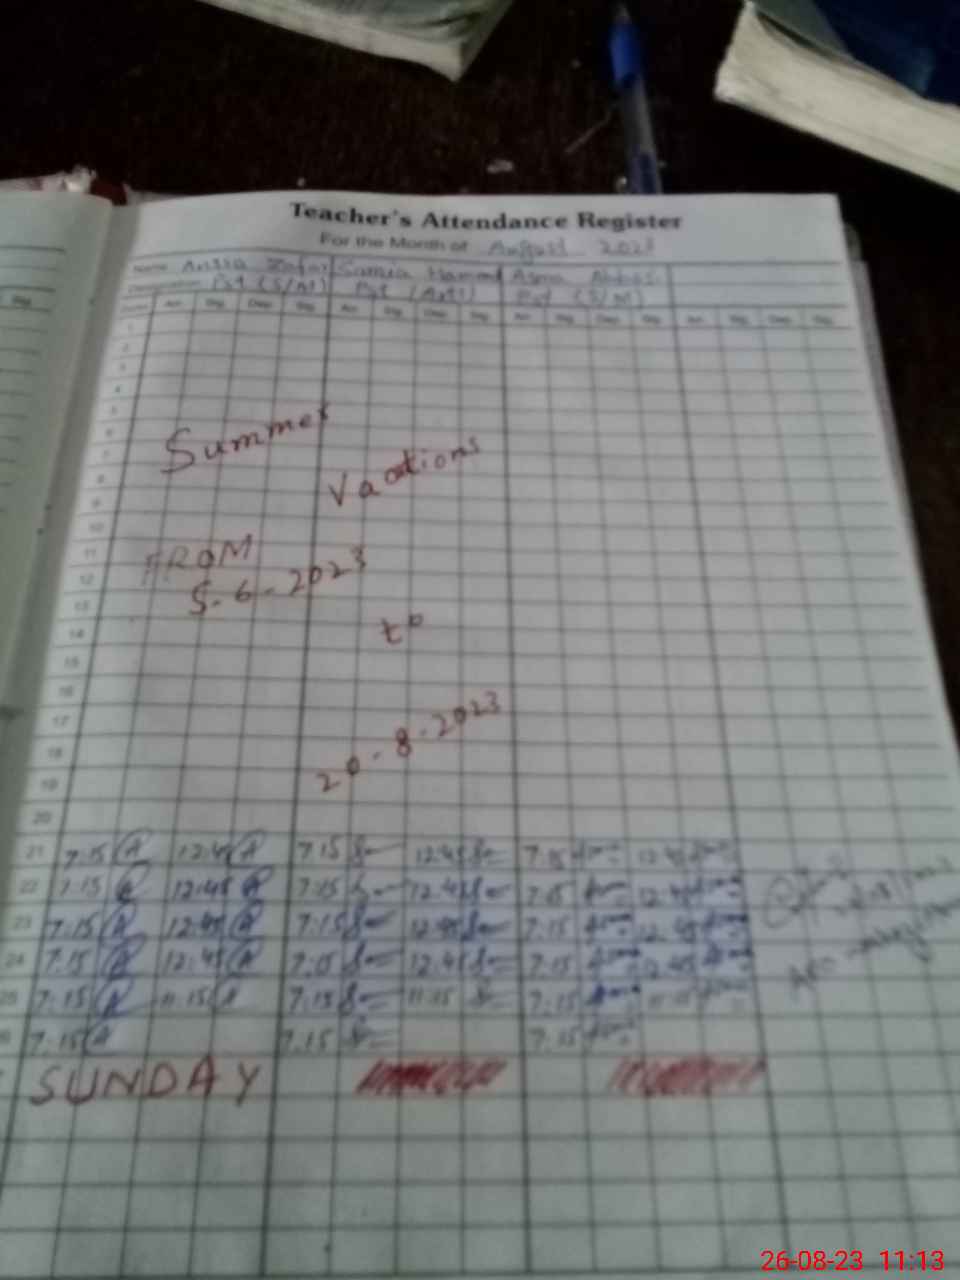 Teacher's Attendance Register
For the Month of August 2023
Name Samia Hammad Asma Abbas
Designation Pst (S/M) Pst (Arts) Pst (S/M)
Arr. Sig. Dep. Sig. Arr. Sig. Dep. Sig. Arr. Sig. Dep. Sig. Arr. Sig. Dep. Sig.
1
2
3
4
5
6
Summer
7
Vacations
8
9
10
11
FROM
12
5-6-2023
13
to
14
15
16
17
18
20-8-2023
19
20
21 7:15 A 12:45 A 7:15 12:45 7:15 12:45
22 7:15 A 12:45 A 7:15 12:45 7:15 12:45
23 7:15 A 12:45 A 7:15 12:45 7:15 12:45
24 7:15 A 12:45 A 7:15 12:45 7:15 12:45
25 7:15 A 11:15 A 7:15 11:15 7:15 11:15
7:15 A 7:15 7:15
SUNDAY
26-08-23 11:13